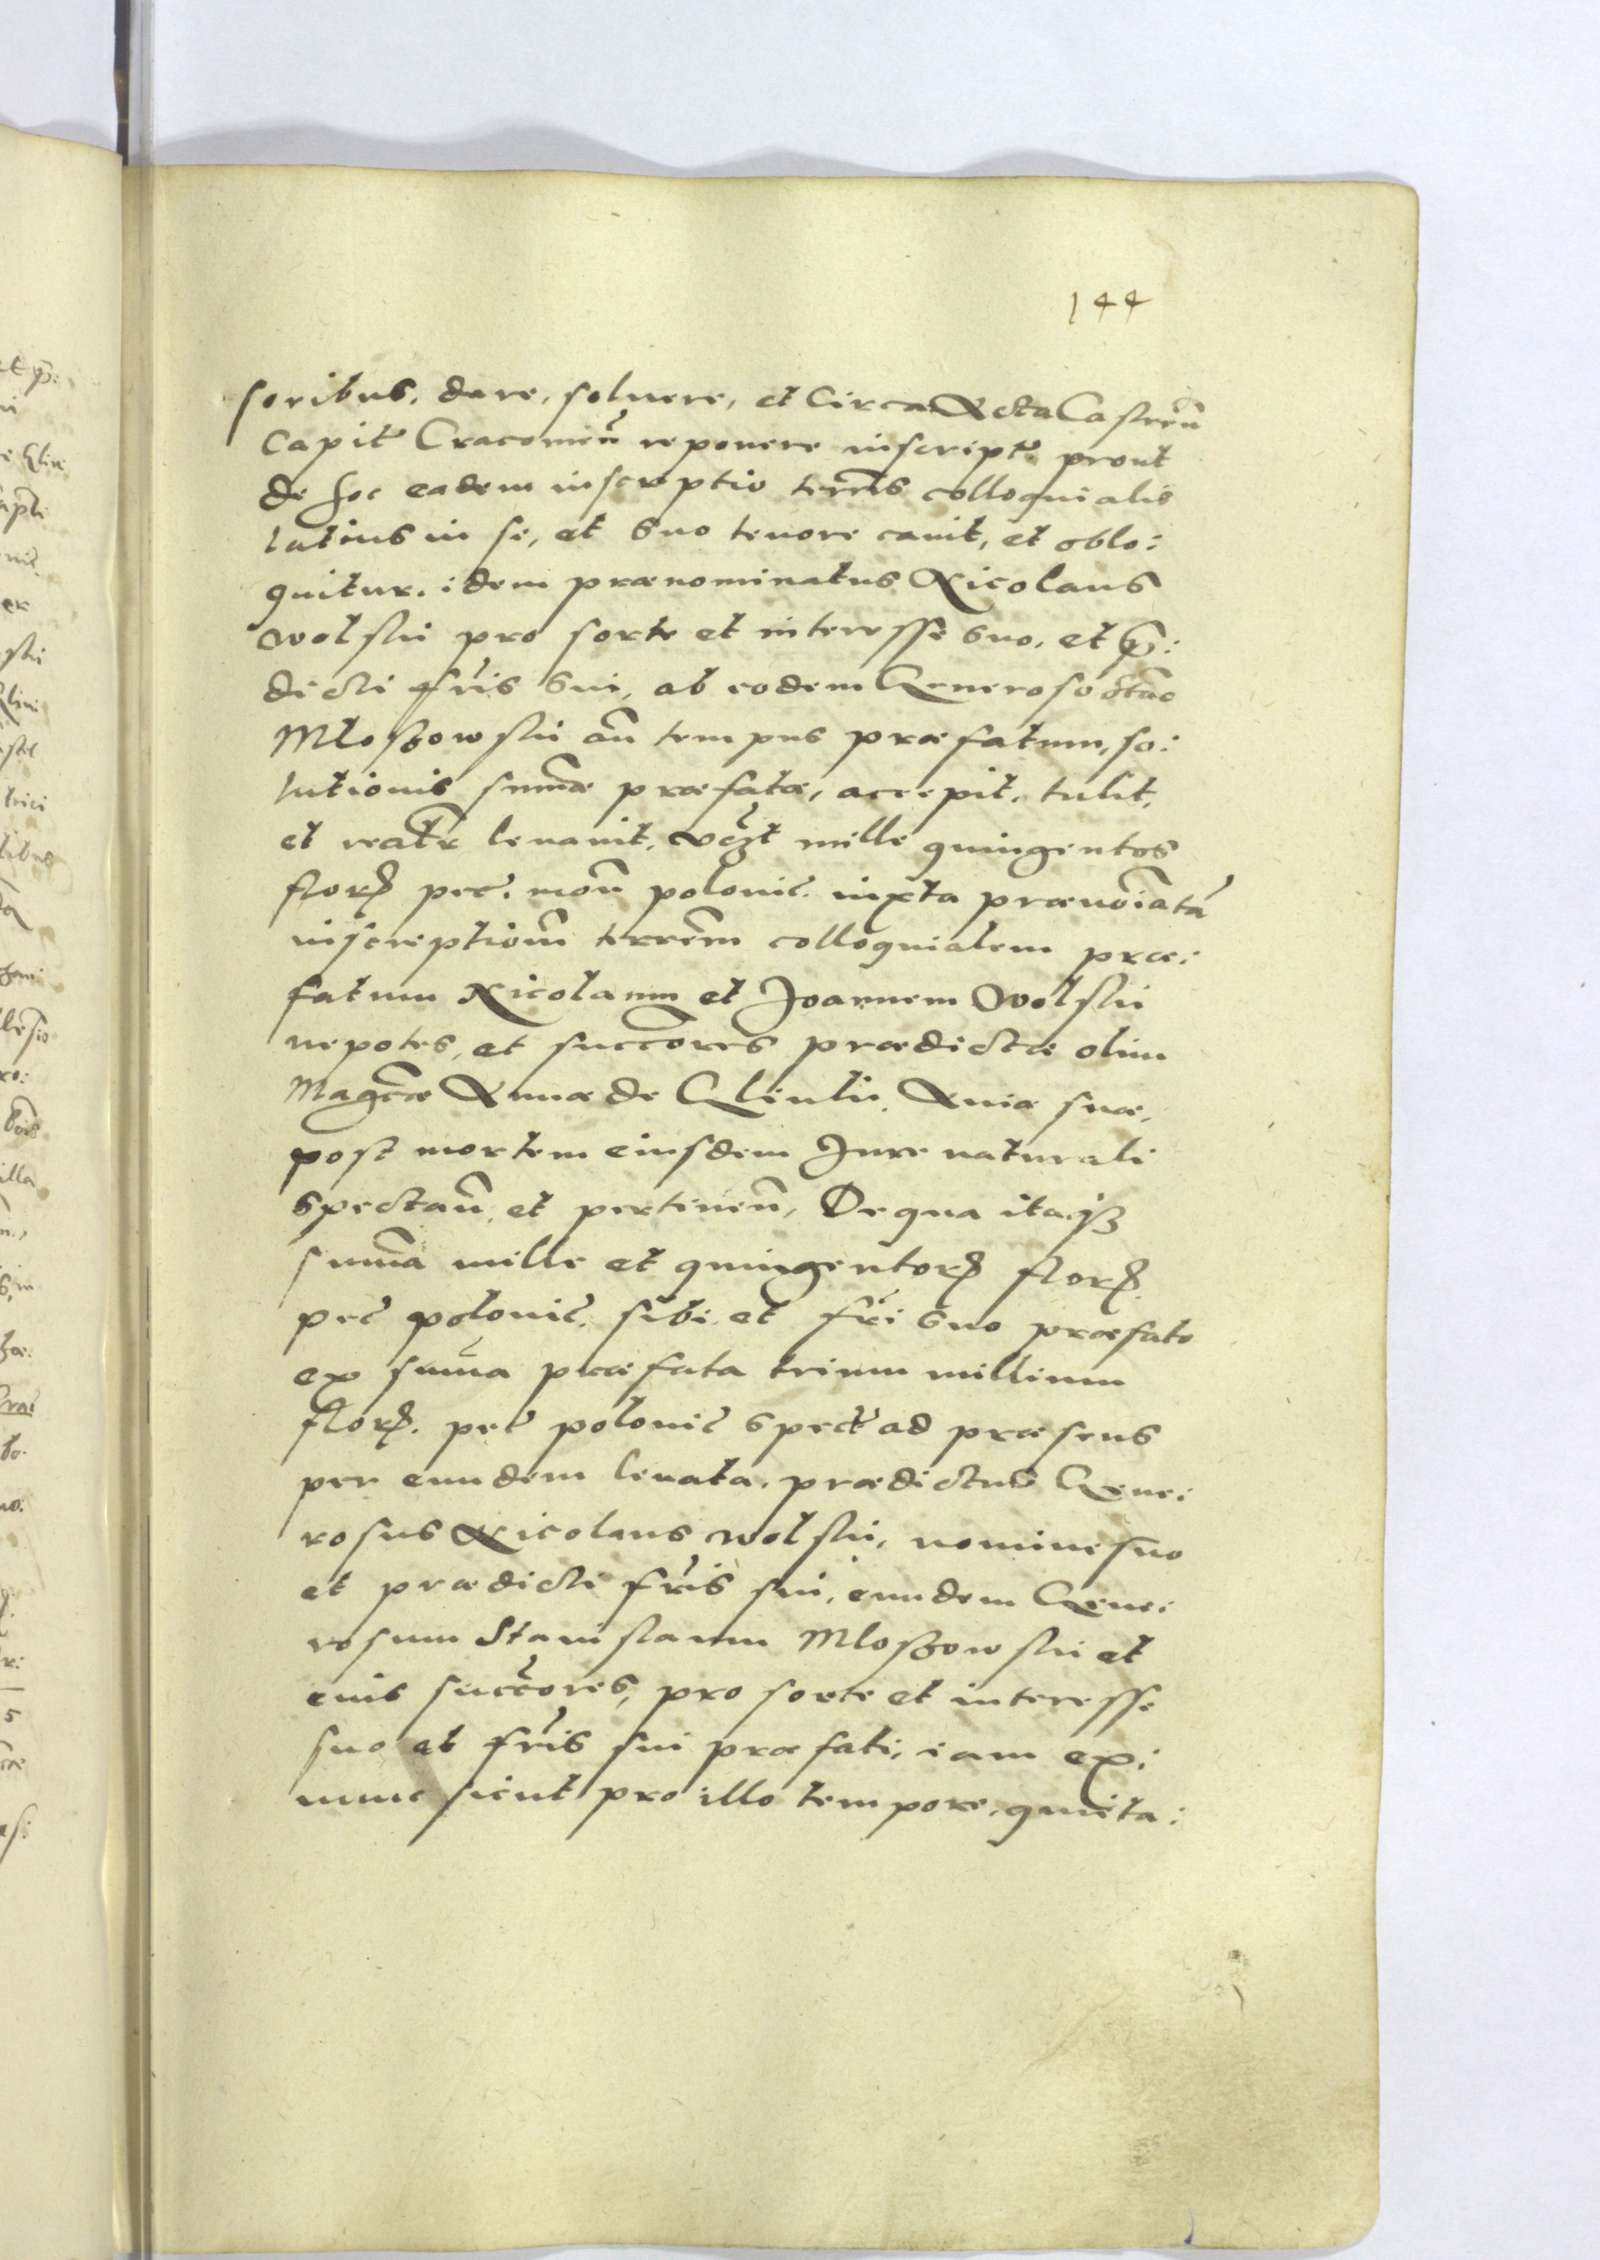 144
soribus, dare, soluere, et Circa Acta Castren̄
Capit̃ Cracouien̄ reponere inscript̃ prout
de hoc eadem inscriptio terrn̄is colloquialis
latius in se, et suo tenore canit, et oblo:
quitur. idem prænominatus Nicolaus
Wolskii pro sorte et interesse suo, et p̄:
dicti fr̄is sui, ab eodem Generoso Stāo
Mloszowskii an̄ tempus præfatum, so:
lutionis sum̄æ præfatæ, accepit, tulit,
et realr̄ leuauit, vc̄zt mille quingentos
flor: pec̃. mon̄ polonic̃. iuxta prænoīatā
inscriptionem̄ terrn̄em colloquialem præ:
fatum Nicolaum et Joannem Wolskii
nepotes, et succ̄ores prædictæ olim
Magc̄æ Annæ de Glinki, Auiæ suæ,
post mortem eiusdem Jure naturali
spectan̄, et pertinen̄, De qua itaq3
sum̄a mille et quingentor: flor:
pec̃ polonic̃. sibi et fr̄i suo præfato
ex sum̄a præfata trium millium
flor: pec̃ polonic̃ spect̃ ad præsens
per eundem leuata, prædictus Gene:
rosus Nicolaus Wolskii, nomine suo
et prædicti fr̄is sui, eundem Gene:
rosum Stanislaum Mloszowskii et
eius succ̄ores, pro sorte et interesse
suo et fr̄is sui præfati, iam ex:
nunc sicut pro illo tempore, quieta: